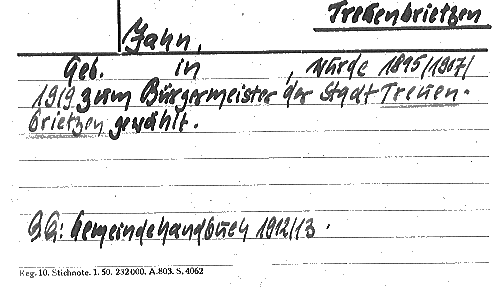 Treuenbrietzen
Jahn,
Geb. in , wurde 1895/1907/
1919 zum Bürgermeister der Stadt Treuen-
brietzen gewählt.
QQ: Gemeindehandbuch 1912/13.
Reg. 10. Stichnote. 1. 50. 232000. A.803. S. 4062